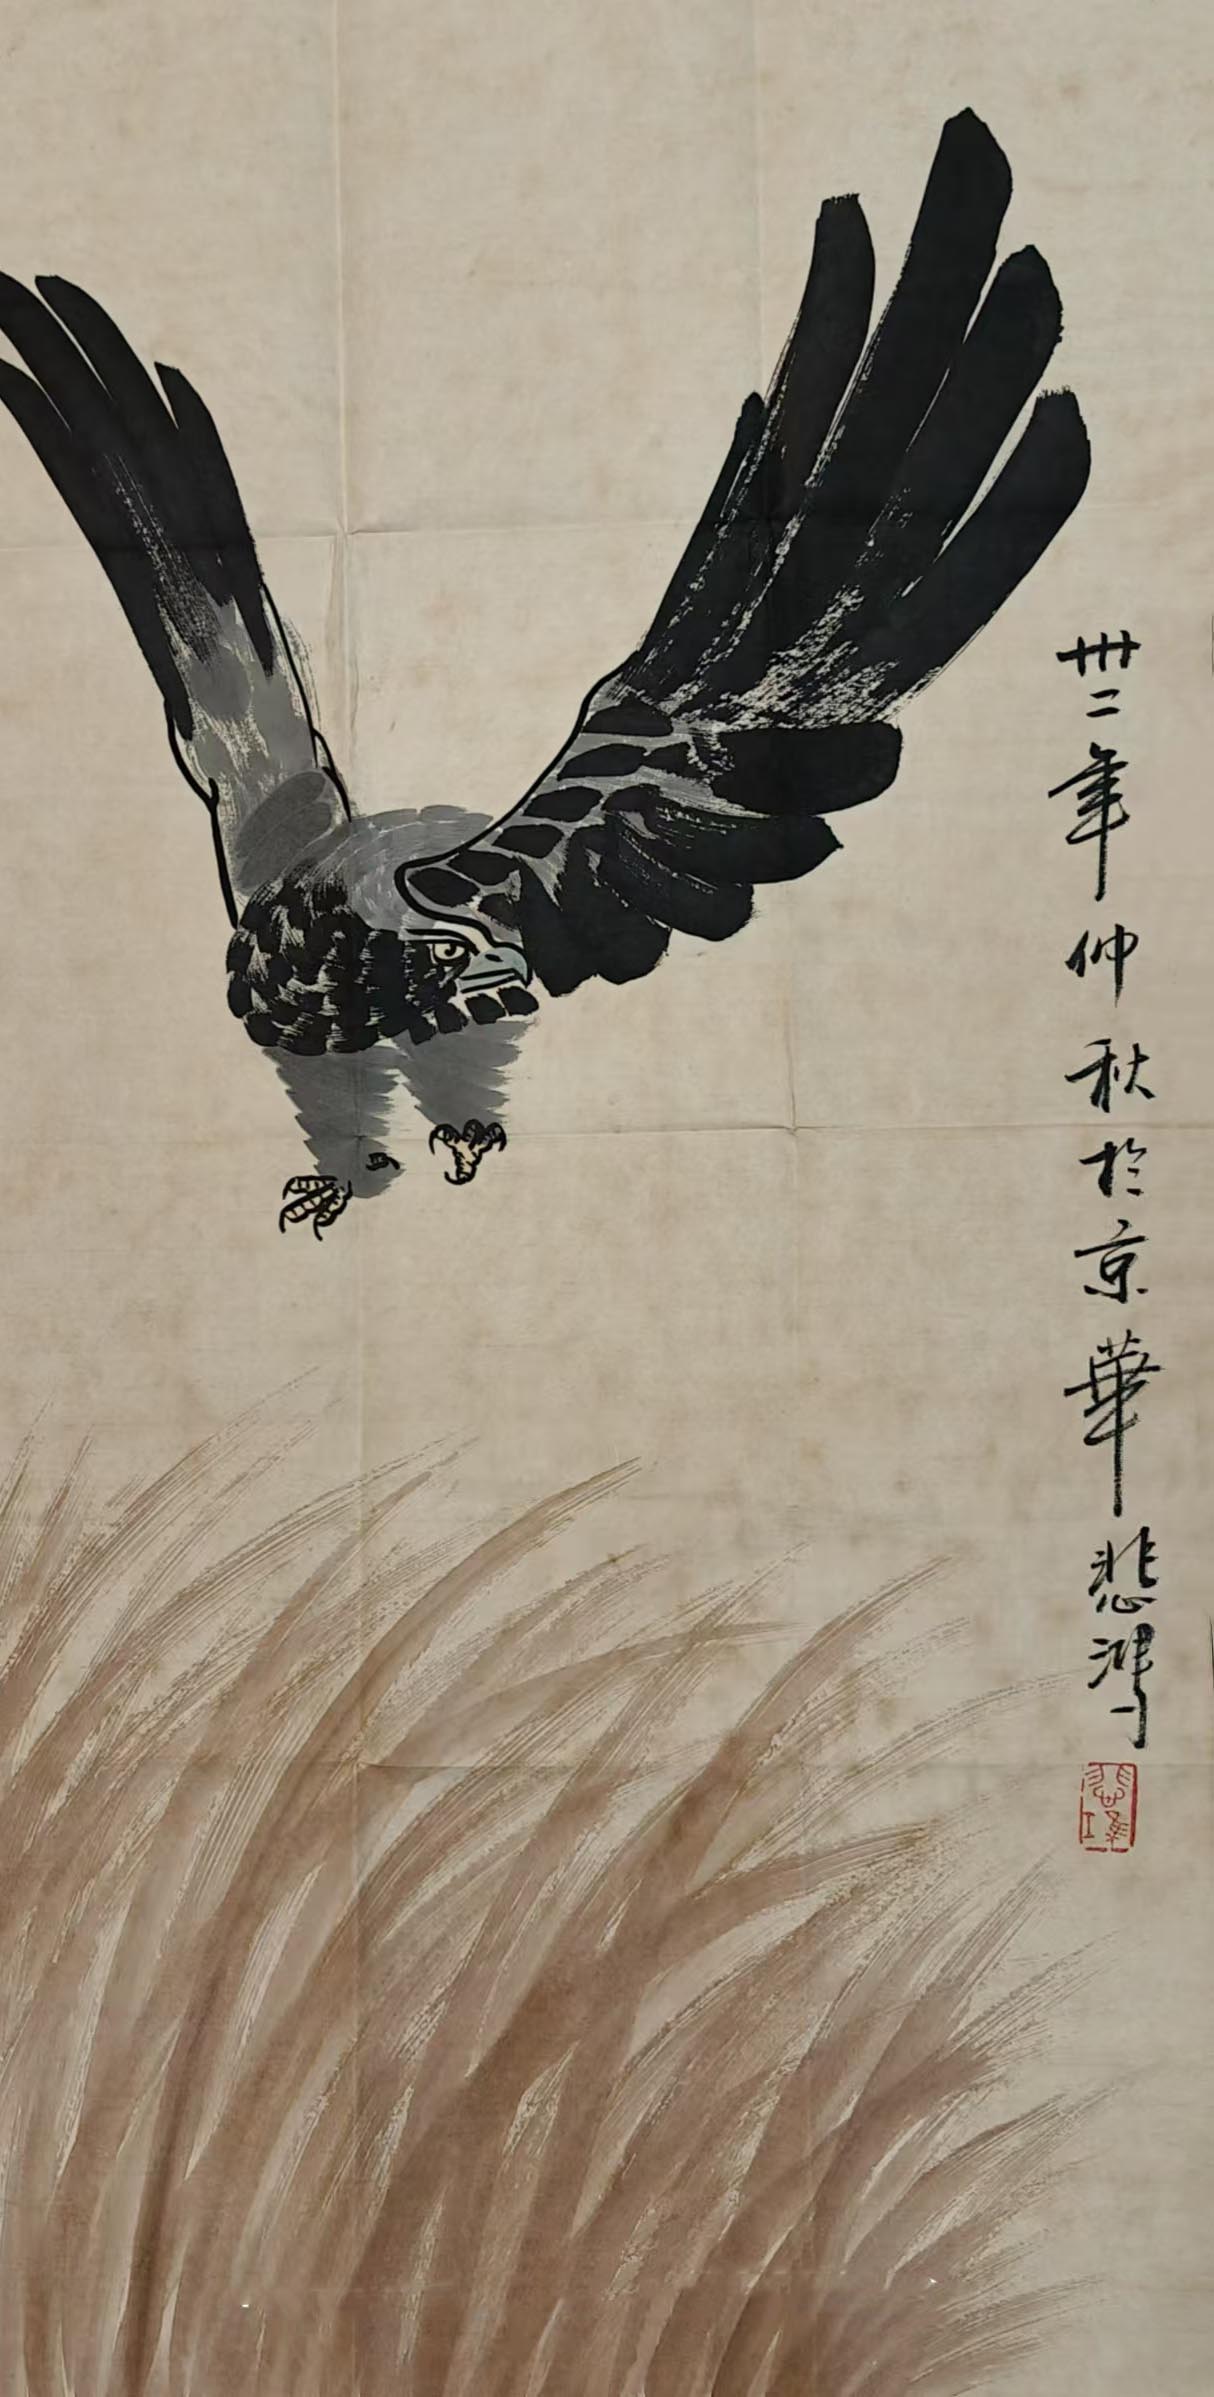 卅二年仲秋於京華悲鴻
悲鴻